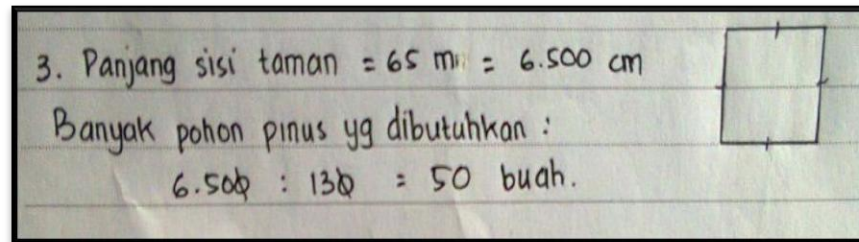 3. Panjang sisi taman = 65 m = 6.500 cm
Banyak pohon pinus yg dibutuhkan :
6.500 : 130 = 50 buah.